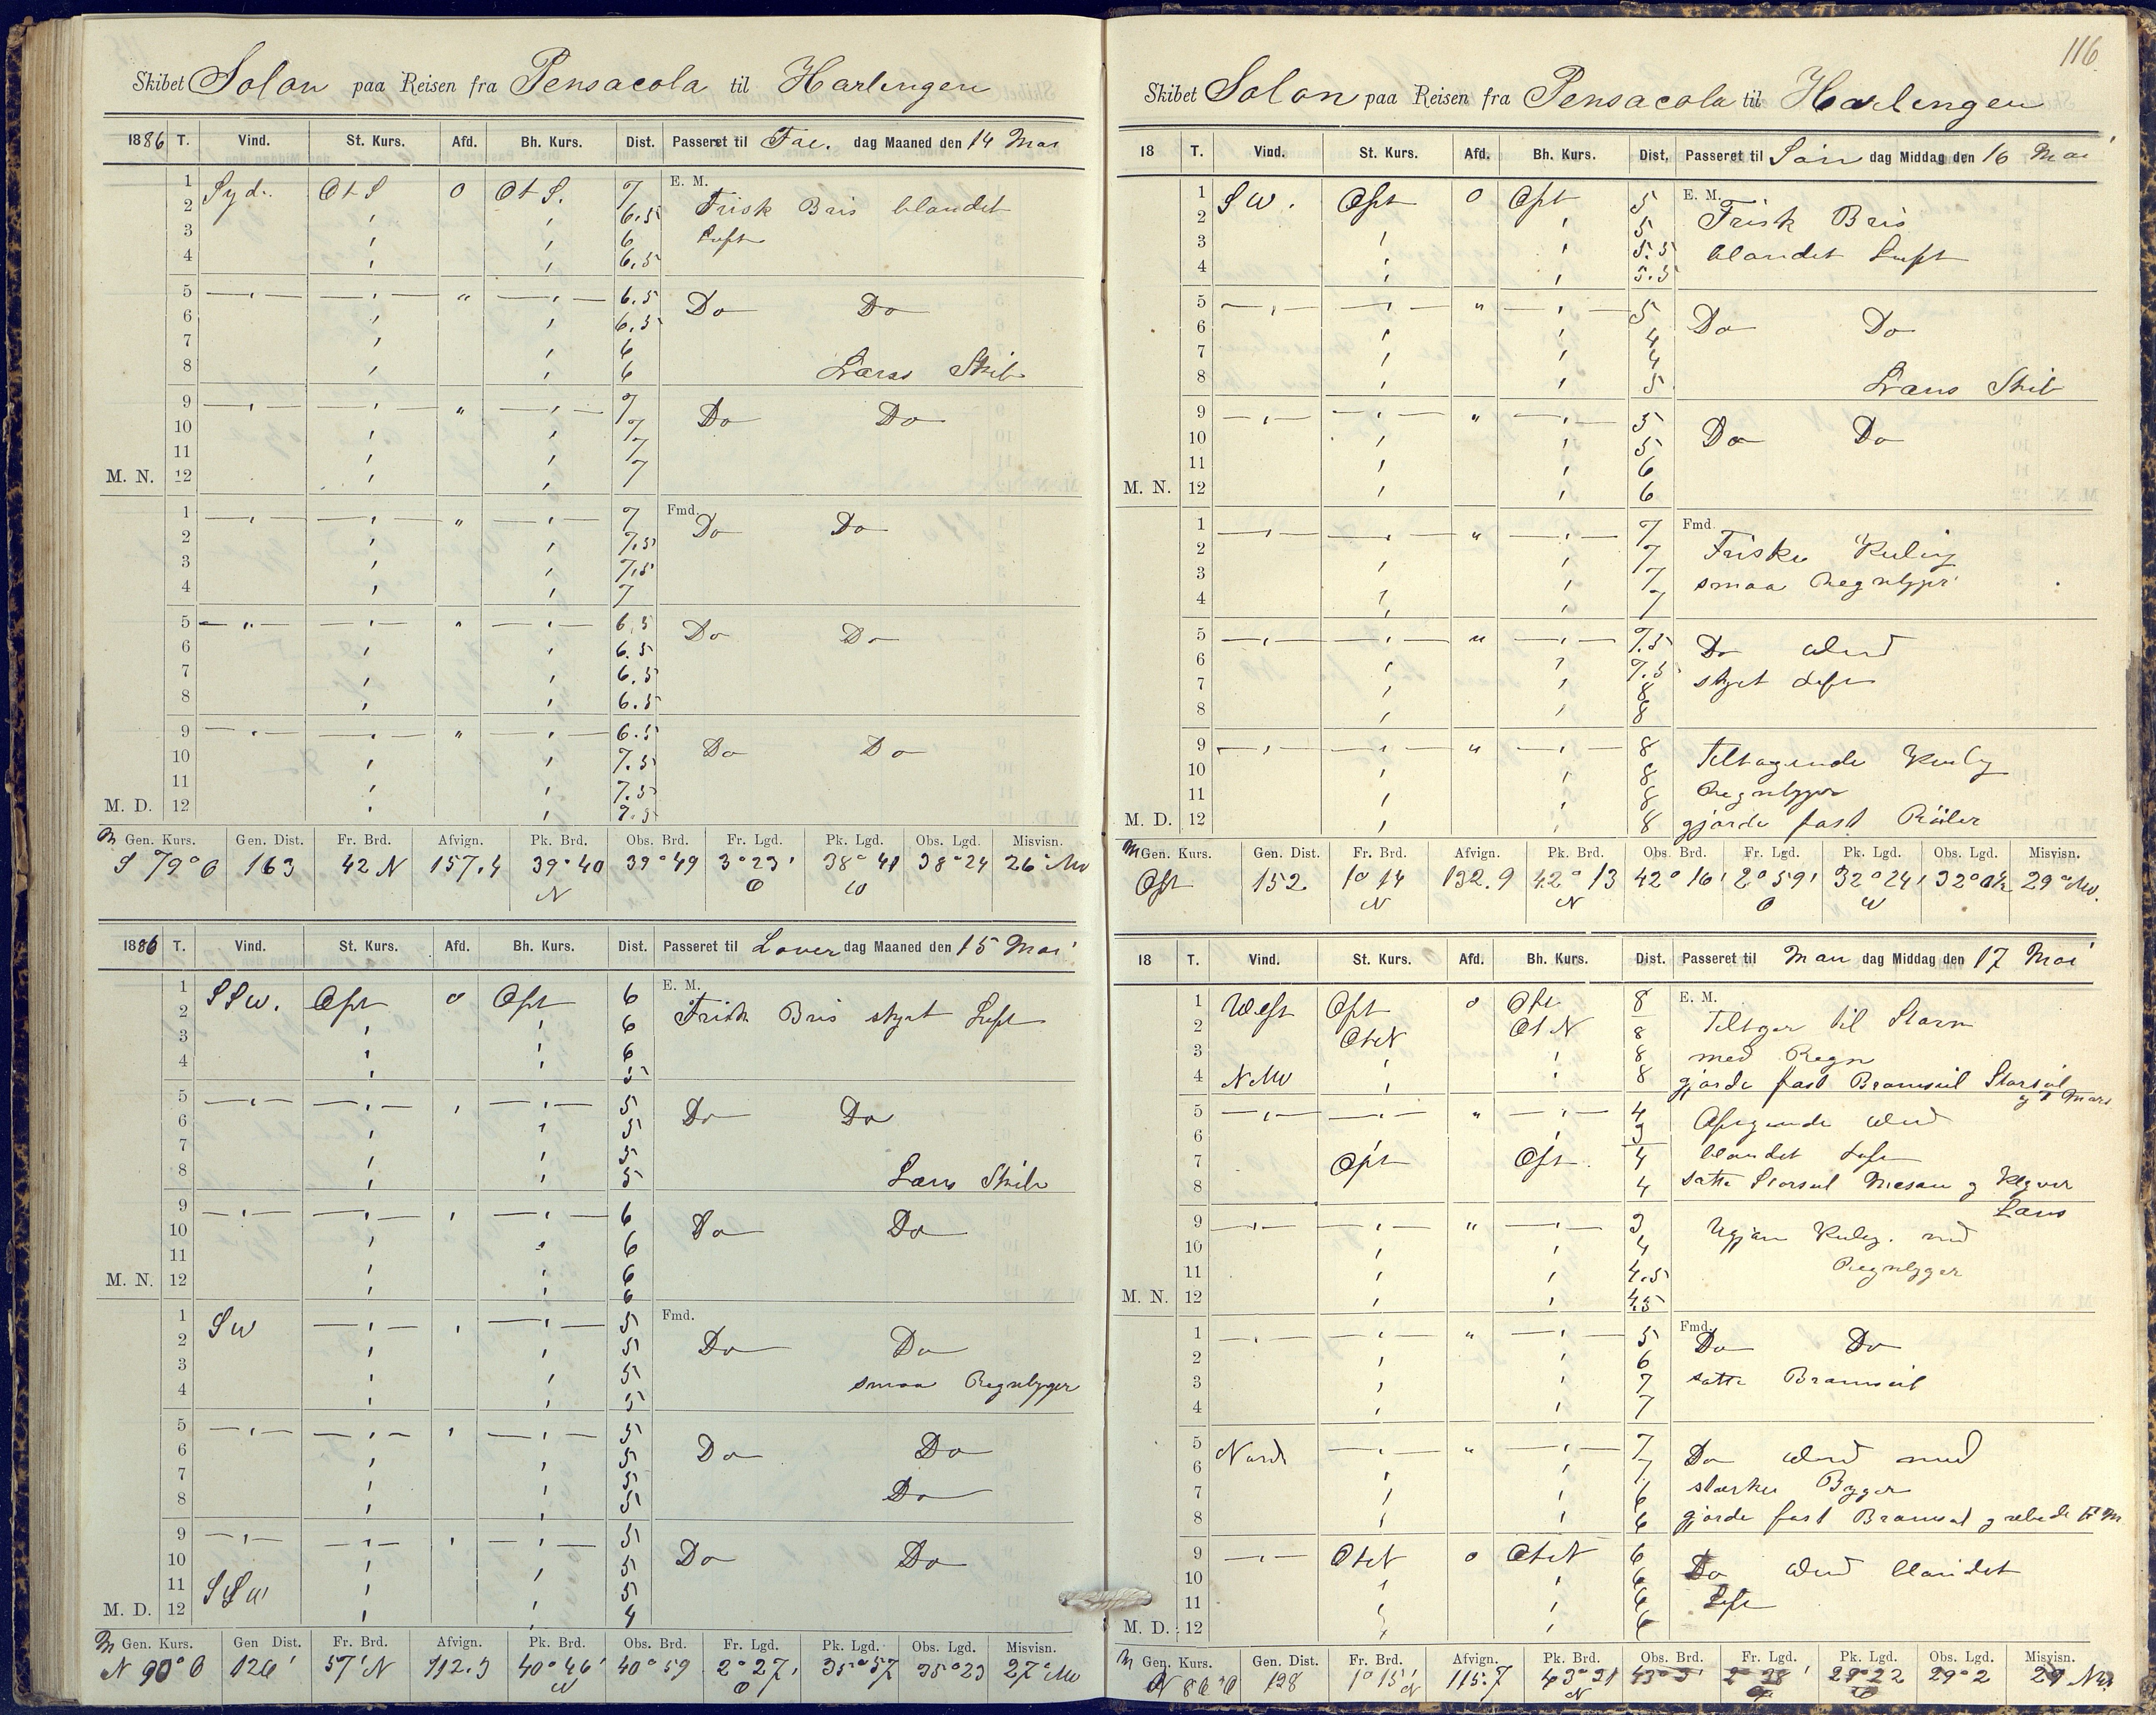 Skibet Solon paa Reisen fra Pensacola til Harlingen
1886 T. Vind. St. Kurs. Afd. Bh. Kurs. Dist. Passeret til Fre. dag Maaned den 14 Mai
1 Syd. OtS 0 OtS. 7 E. M.
2 " " 6.5 Frisk Bris blandet
3 " " 6 Luft
4 " " 6.5
5 — " — — " — " — " — 6.5 Do Do
6 " " 6.5
7 " " 6
8 " " 6 Læns Skib
9 — " — — " — " — " — 7 Do Do
10 " " 7
11 " " 7
M. N. 12 " " 7
1 — " — — " — " — " — 7 Fmd. Do Do
2 " " 7.5
3 " " 7.5
4 " " 7
5 — " — — " — " — " — 6.5 Do Do
6 " " 6.5
7 " " 6.5
8 " " 6.5
9 — " — — " — " — " — 6.5 Do Do
10 " " 7.5
11 " " 7.5
M. D. 12 " " 7.5
M Gen. Kurs. Gen. Dist. Fr. Brd. Afvign. Pk. Brd. Obs. Brd. Fr. Lgd. Pk. Lgd. Obs. Lgd. Misvisn.
S 79° O 163 42 N 157.4 39° 40 N 39° 49 3° 23' O 38° 41 W 38° 24 26° NW
1886 T. Vind. St. Kurs. Afd. Bh. Kurs. Dist. Passeret til Løver dag Maaned den 15 Mai
1 SSW. Ost 0 Ost 6 E. M.
2 " " 6 Frisk Bris skyet Luft
3 " " 6
4 " " 5
5 — " — — " — " — " — 5 Do Do
6 " " 5
7 " " 5
8 " " 5 Læns Skib
9 — " — — " — " — " — 6 Do Do
10 " " 6
11 " " 6
M. N. 12 " " 6
1 SW — " — " — " — 5 Fmd.
2 " " 5 Do Do
3 " " 5 smaa Regnbyger
4 " " 5
5 — " — — " — " — " — 5 Do Do
6 " " 5
7 " " 5 Do
8 " " 5
9 — " — — " — " — " — 5 Do Do
10 " " 5
11 SSW " " 5
M. D. 12 " " 4
M Gen. Kurs. Gen Dist. Fr. Brd. Afvign. Pk. Brd. Obs. Brd. Fr. Lgd. Pk. Lgd. Obs. Lgd. Misvisn.
N 90° O 126' 57' N 112.3 40° 46' N 40° 59 2° 27' O 35° 57 35° 23 27° NW
116.
Skibet Solon paa Reisen fra Pensacola til Harlingen
18 T. Vind. St. Kurs. Afd. Bh. Kurs. Dist. Passeret til Søn dag Middag den 16 Mai
1 SW. Ost 0 Ost 5 E. M.
2 " " 5 Frisk Bris
3 " " 5.5 blandet Luft
4 " " 5.5
5 — " — — " — " — " — 5 Do Do
6 " " 4
7 " " 4
8 " " 5 Læns Skib
9 — " — — " — " — " — 5 Do Do
10 " " 5
11 " " 6
M. N. 12 " " 6
1 — " — — " — " — " — 7 Fmd.
2 " " 7 Friske Kuling
3 " " 7 smaa Regnbyger
4 " " 7
5 — " — — " — " — " — 7.5 Do Vind
6 " " 7.5 skyet Luft
7 " " 8
8 " " 8
9 — " — — " — " — " — 8 Tiltagende Kuling
10 " " 8
11 " " 8 Regnbyger
M. D. 12 " " 8 gjorde fast Röiler
M Gen. Kurs. Gen. Dist. Fr. Brd. Afvign. Pk. Brd. Obs. Brd. Fr. Lgd. Pk. Lgd. Obs. Lgd. Misvisn.
Ost 152. 1° 14 N 132.9 42° 13 N 42° 16' 2° 59' O 32° 24' W 29° NW.
18 T. Vind. St. Kurs. Afd. Bh. Kurs. Dist. Passeret til Man dag Middag den 17 Mai
1 West Ost 0 Ost 8 E. M.
2 OtN OtN 8 Tiltager til Storm
3 " " 8 med Regn
4 NNW " " 8 gjorde fast Bramseil Storseil
og Mers
5 — " — — " — " — " — 4 Aftagende Vind
6 " " 3
7 Ost Ost 4 blandet Luft
8 4 satte Storseil Mesan og Klyver
Læns
9 — " — — " — " — " — 3 Ujævn Kuling. med
10 " " 4
11 " " 4.5 Regnbyger
M. N. 12 " " 4.5
1 — " — — " — " — " — 5 Fmd. Do Do
2 " " 6
3 " " 7 satte Bramseil
4 " " 7
5 Nord — " — " — " — 7 Do Vind med
6 " " 7
7 " " 6 stærke Byger
8 " " 6 gjorde fast Bramseil og rebede
9 — " — OtN 0 OtN 6 Do Vind blandet
10 " " 6
11 " " 6 Luft
M. D. 12 " " 6
M Gen. Kurs. Gen. Dist. Fr. Brd. Afvign. Pk. Brd. Obs. Brd. Fr. Lgd. Pk. Lgd. Obs. Lgd. Misvisn.
N 86° O 128 1° 15' N 115.7 43° 31 N 2° 38' 29° 22 29° 2 29 NW.